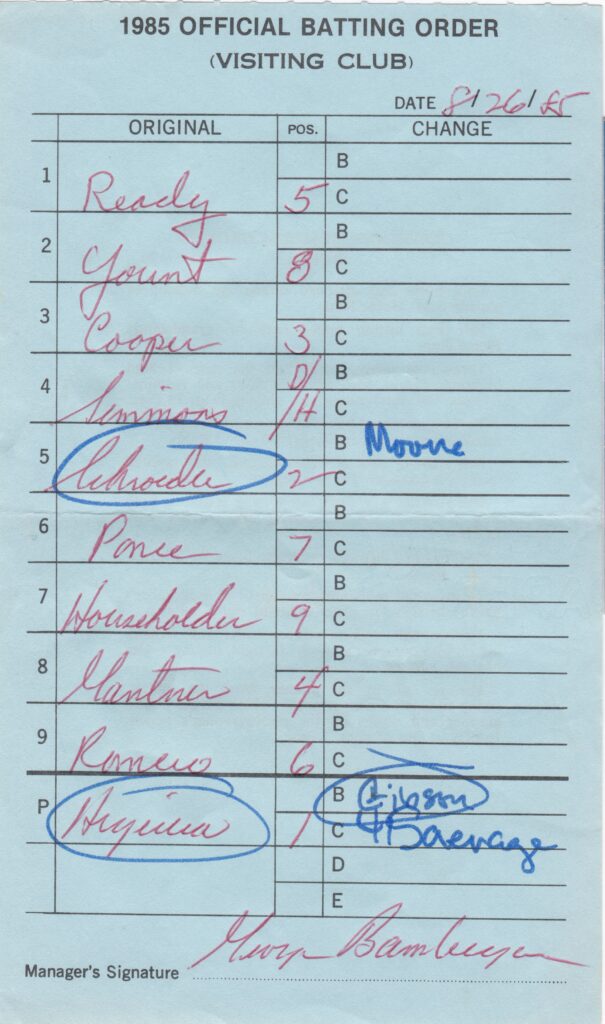 1985 OFFICIAL BATTING ORDER
(VISITING CLUB)
DATE 8/26/85
ORIGINAL POS. CHANGE
1 Ready 5 B
C
2 Yount 8 B
C
3 Cooper 3 B
C
4 Simmons D/H B
C
5 Schroeder 2 B Moore
C
6 Ponce 7 B
C
7 Householder 9 B
C
8 Gantner 4 B
C
9 Romero 6 B
C
P Higuera 1 B Gibson
C Searage
D
E
George Bamberger
Manager's Signature